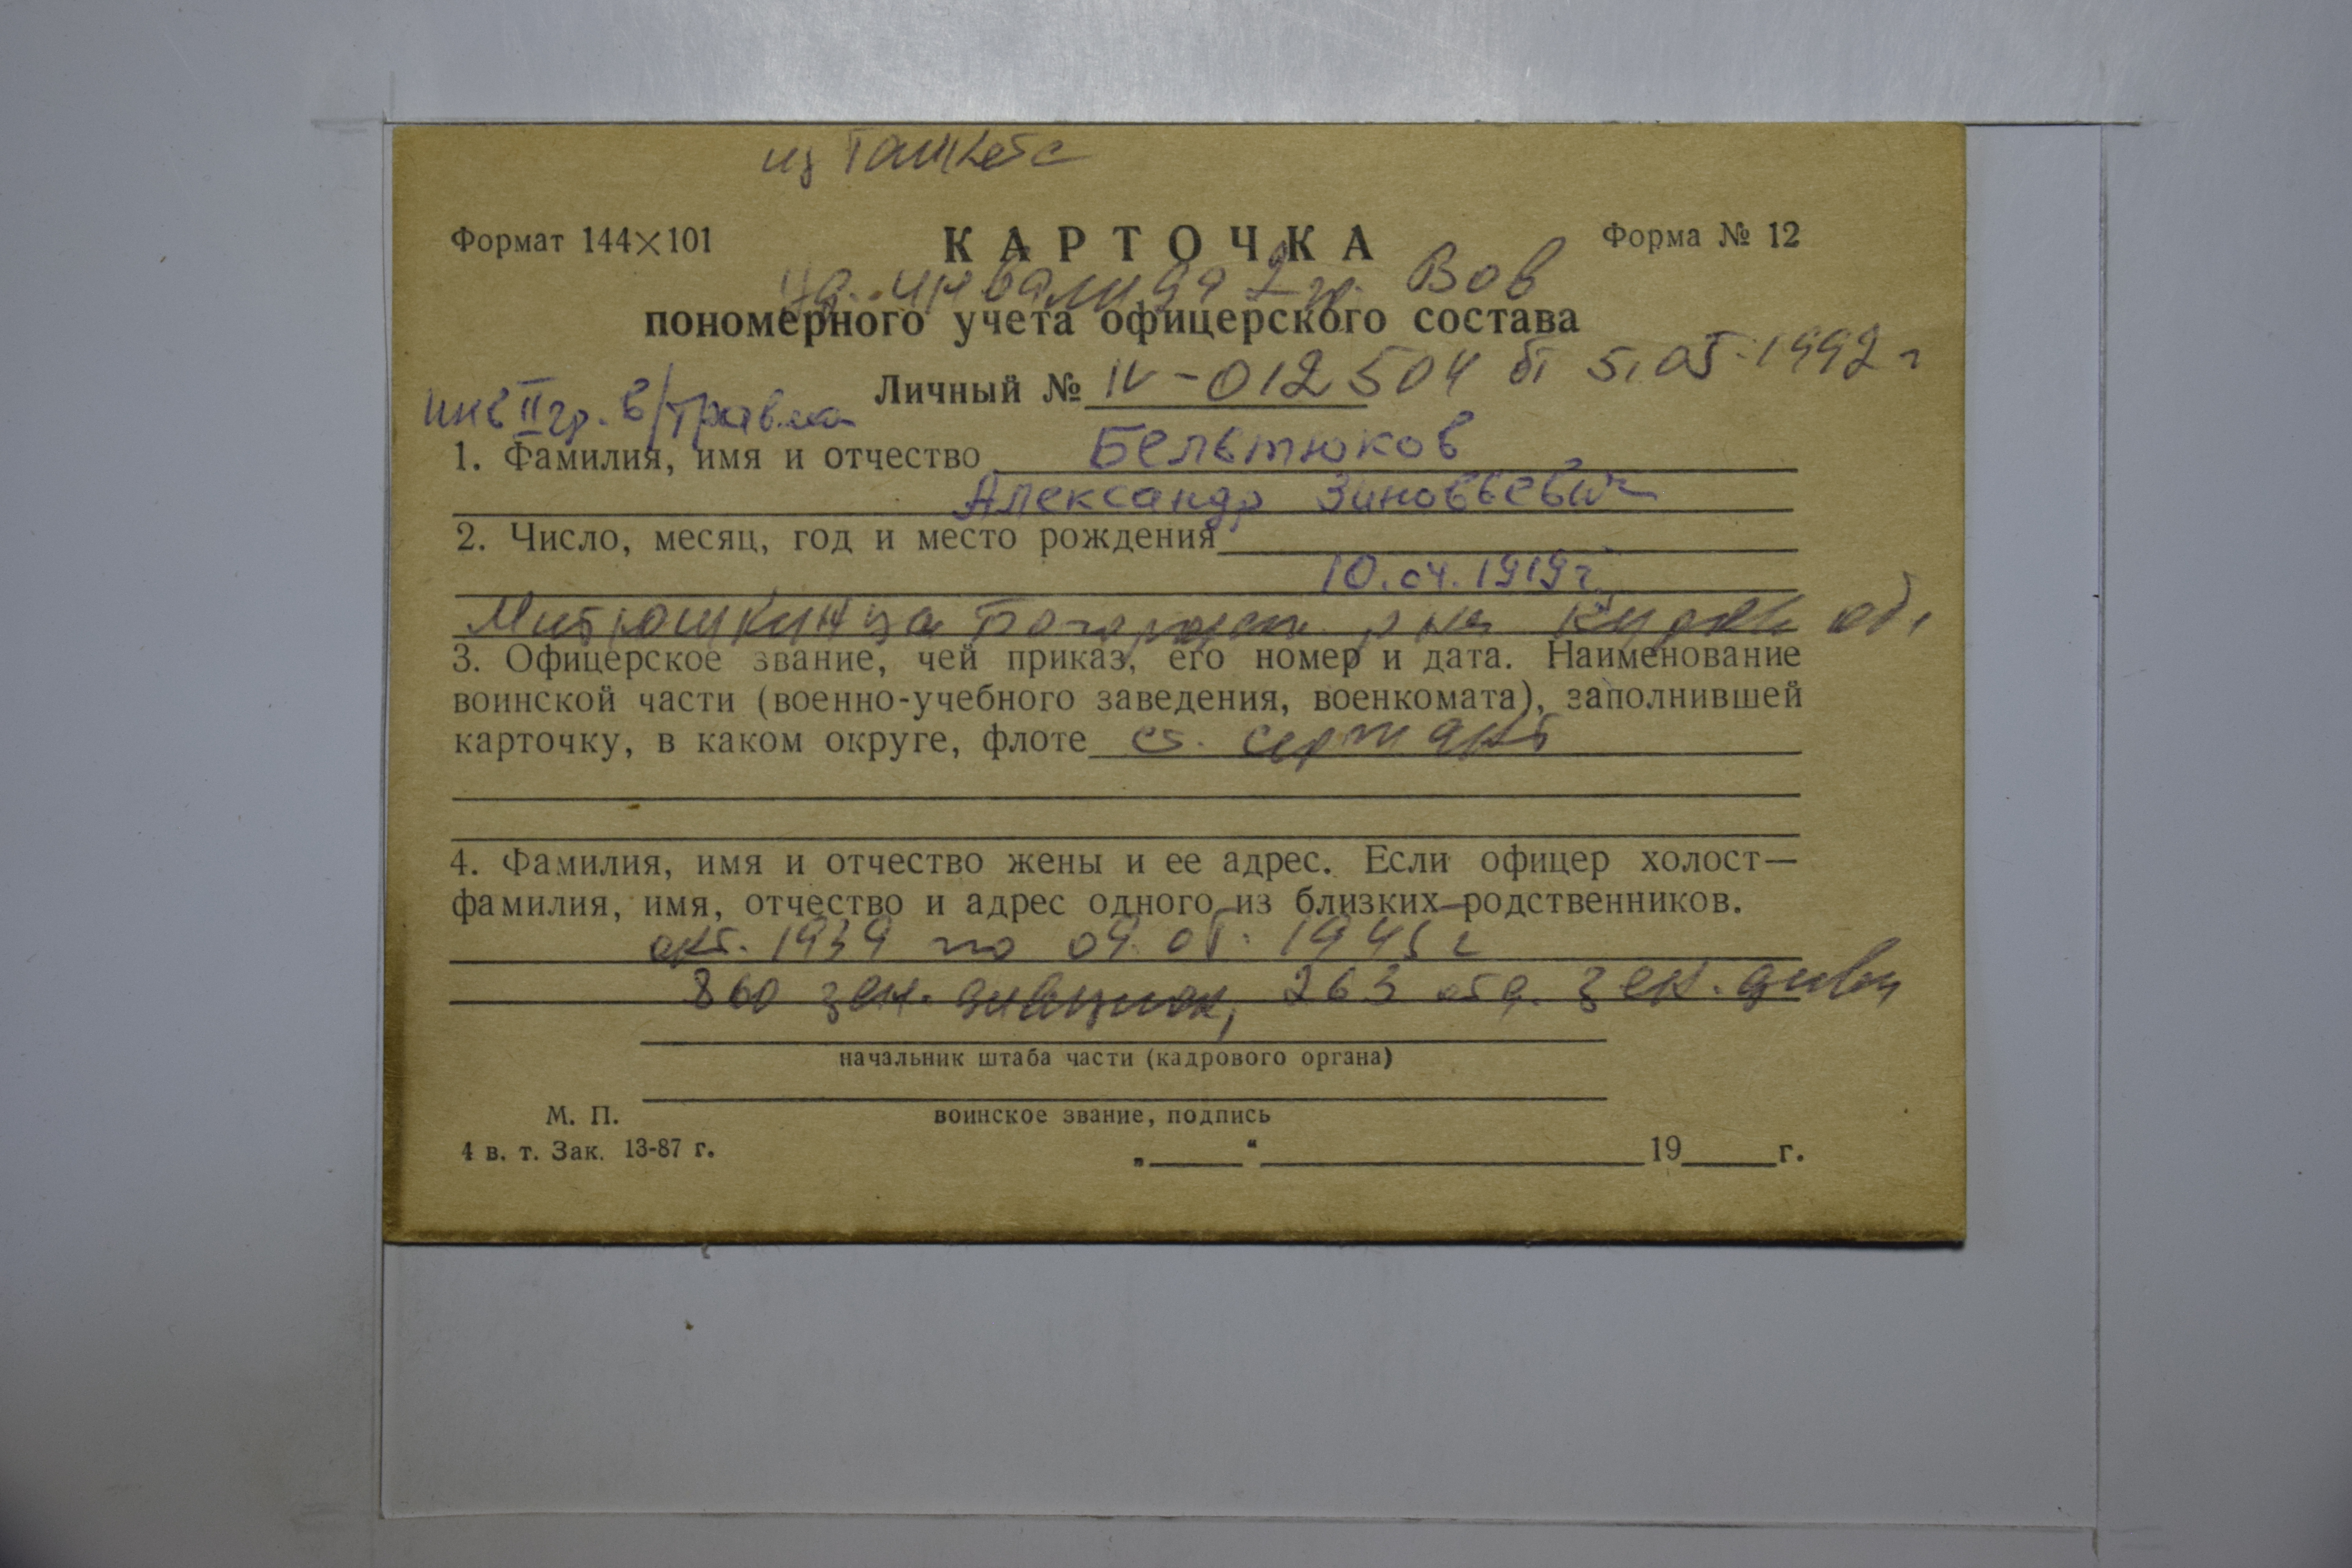 из Ташкета
Формат 144×101
КАРТОЧКА
Форма № 12
уд. инвалида 2 гр. Вов
пономерного учета офицерского состава
Личный № IV-012504 от 5.05.1992 г
инв II гр. в/травма
1. Фамилия, имя и отчество Бельтюков
Александр Зиновьевич
2. Число, месяц, год и место рождения
10.04.1919 г.
р на обл
3. Офицерское звание, чей приказ, его номер и дата. Наименование
воинской части (военно-учебного заведения, военкомата), заполнившей
карточку, в каком округе, флоте ст. сержант
4. Фамилия, имя и отчество жены и ее адрес. Если офицер холост—
фамилия, имя, отчество и адрес одного из близких родственников.
окт. 1939 по 09.05.1945 г
860 зен. дивизион, 263 отд. зен. дивиз
начальник штаба части (кадрового органа)
М. П.
воинское звание, подпись
4 в. т. Зак. 13-87 г.
„ “ 19 г.